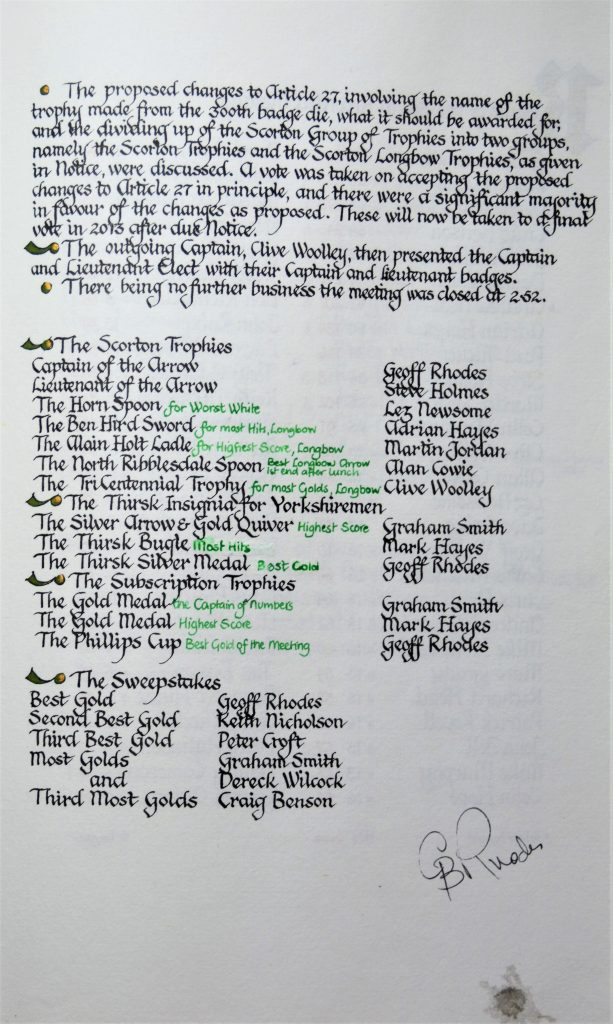 The proposed changes to Article 27, involving the name of the
trophy made from the 300th badge die, what it should be awarded for,
and the dividing up of the Scorton Group of Trophies into two groups,
namely the Scorton Trophies and the Scorton Longbow Trophies, as given
in Notice, were discussed. A vote was taken on accepting the proposed
changes to Article 27 in principle, and there were a significant majority
in favour of the changes as proposed. These will now be taken to a final
vote in 2013 after due Notice.
The outgoing Captain, Clive Woolley, then presented the Captain
and Lieutenant Elect with their Captain and Lieutenant badges.
There being no further business the meeting was closed at 2·52.
The Scorton Trophies
Captain of the Arrow Geoff Rhodes
Lieutenant of the Arrow Steve Holmes
The Horn Spoon for Worst White Lez Newsome
The Ben Hird Sword for most Hits, Longbow Adrian Hayes
The Alain Holt Ladle for Highest Score, Longbow Martin Jordan
The North Ribblesdale Spoon Best Longbow Arrow 1st end after lunch Alan Cowie
The TriCentennial Trophy for most Golds, Longbow Clive Woolley
The Thirsk Insignia for Yorkshiremen
The Silver Arrow & Gold Quiver Highest Score Graham Smith
The Thirsk Bugle Most Hits Mark Hayes
The Thirsk Silver Medal Best Gold Geoff Rhodes
The Subscription Trophies
The Gold Medal the Captain of Numbers Graham Smith
The Gold Medal Highest Score Mark Hayes
The Phillips Cup Best Gold of the Meeting Geoff Rhodes
The Sweepstakes
Best Gold Geoff Rhodes
Second Best Gold Keith Nicholson
Third Best Gold Peter Croft
Most Golds Graham Smith
and Dereck Wilcock
Third Most Golds Craig Benson
GB Rhodes